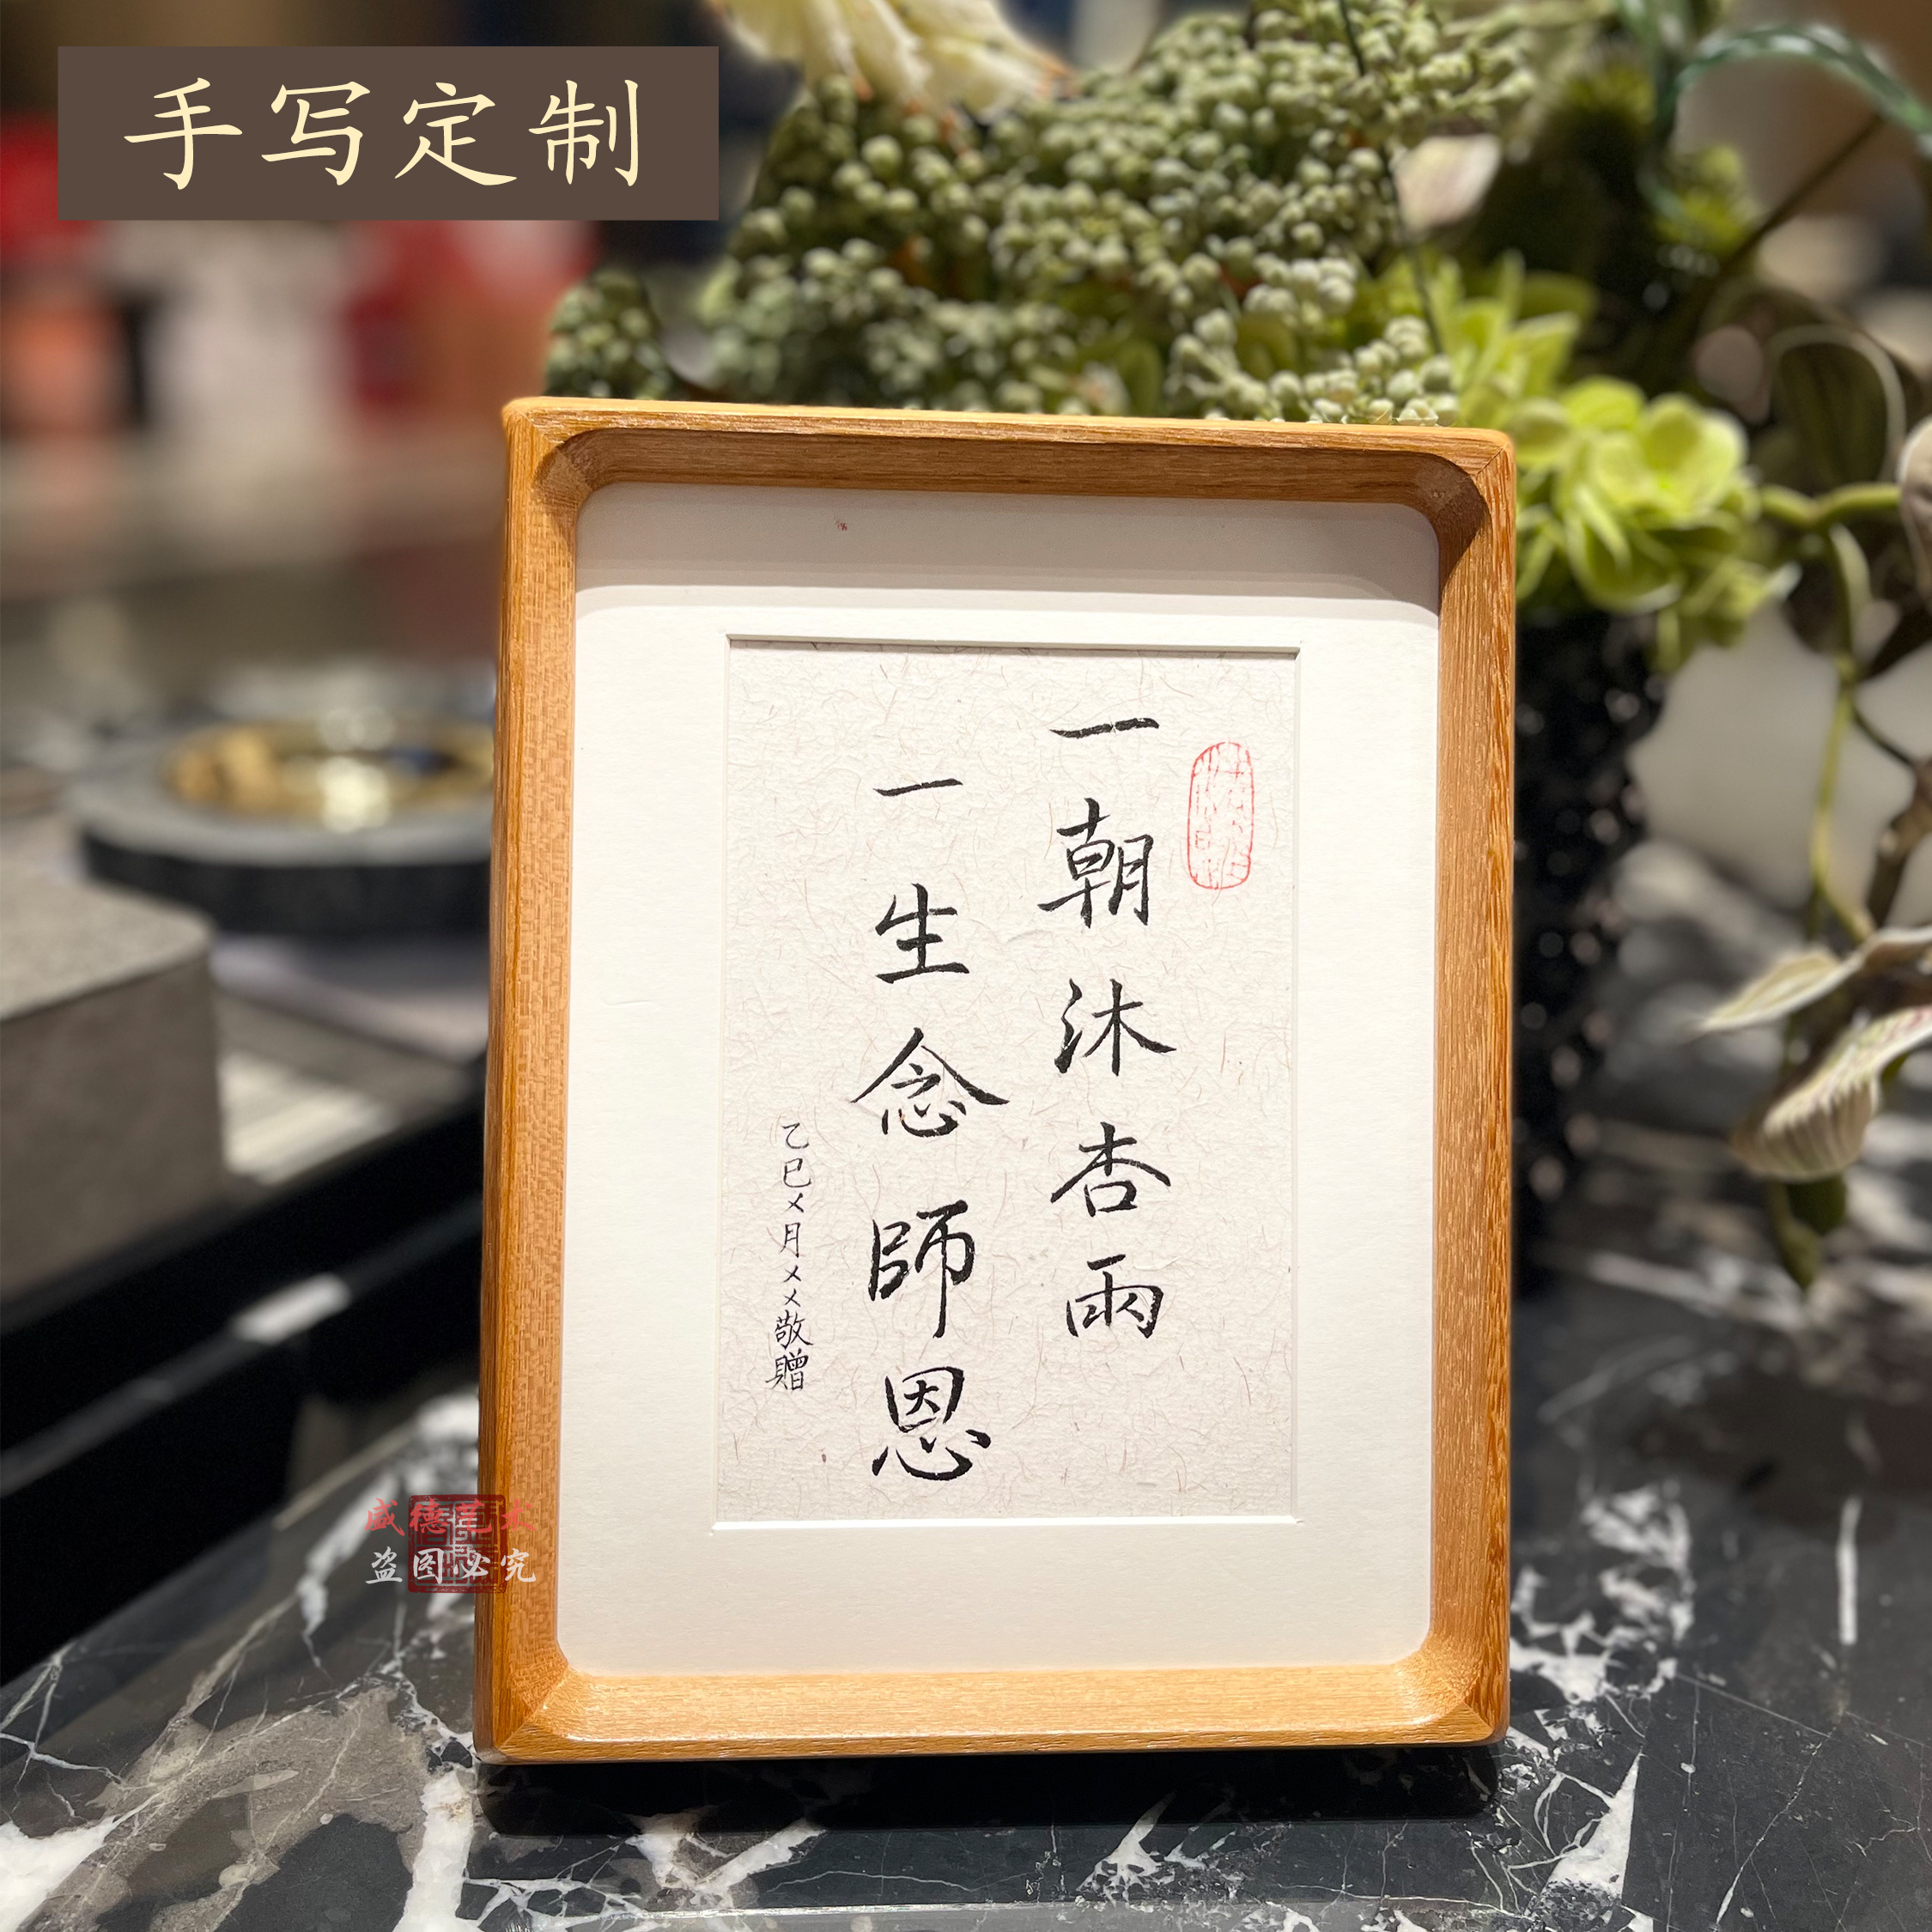 手写定制
一朝沐杏雨
一生念師恩
乙巳乄月乄乄敬贈
盗图必究